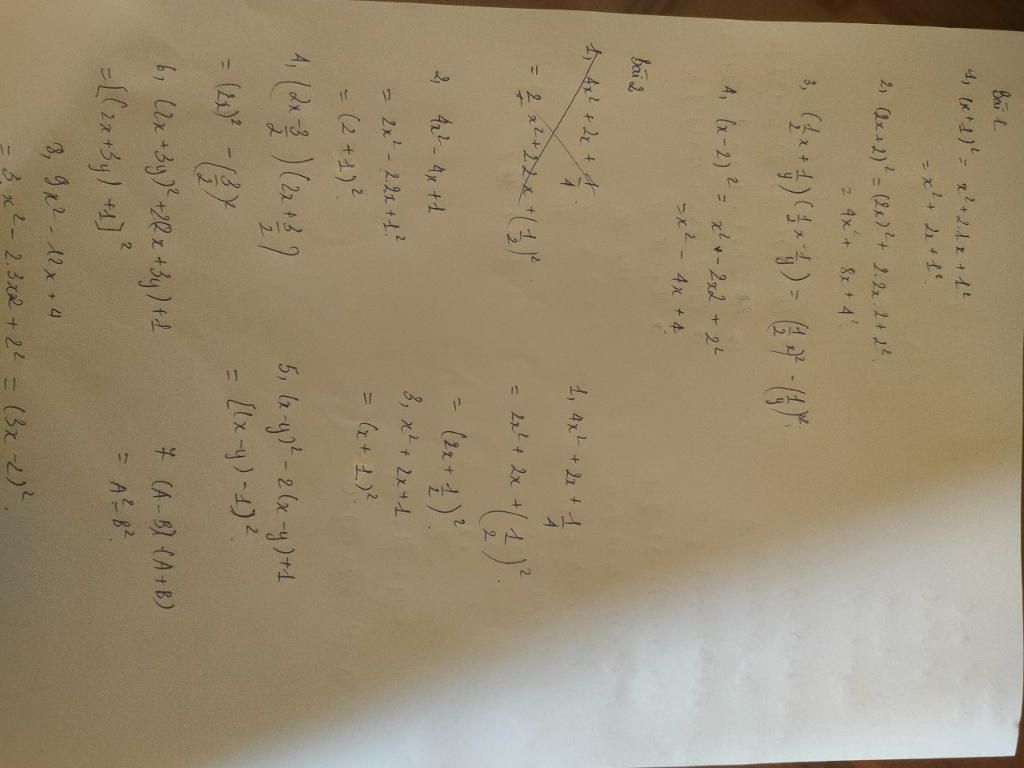 Bài 1
1, (x+1)² = x² + 2.1x + 1²
= x² + 2x + 1².
2, (2x+2)² = (2x)² + 2.2x.2 + 2².
= 4x² + 8x + 4.
3, (1/2 x + 1/y)(1/2 x - 1/y) = (1/2 x)² - (1/y)².
4, (x-2)² = x² + -2x2 + 2²
= x² - 4x + 4.
Bài 2
1, 4x² + 2x + 1/4
= 2x² + 2x + (1/2)².
= (2x + 1/2)²
2, 4x² - 4x + 1
= 2x² - 22x + 1²
= (2+1)².
3, x² + 2x + 1
= (x+1)².
4, (2x - 3/2)(2x + 3/2)
= (2x)² - (3/2)²
5, (x-y)² - 2(x-y) + 1
= [(x-y) - 1)²
6, (2x+3y)² + 2(2x+3y) + 1
= [(2x+3y) + 1]²
7 (A-B).(A+B)
= A² - B².
8, 9x² - 12x + 4
= 3x² - 2.3x2 + 2² = (3x-2)².